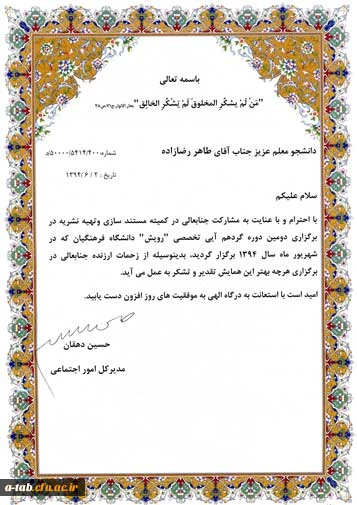 باسمه تعالی
"مَنْ لَمْ یشکُرِ المخلوقَ لَمْ یَشْکُرِ الخالِق" بحار الانوار ج۷۱ ص۴۵
دانشجو معلم عزیز جناب آقای طاهر رضازاده
شماره: ۵۰۰۰۰/۵۴۱۴/۴۰۰/د
تاریخ : ۲ / ۶ / ۱۳۹۴
سلام علیکم
با احترام و با عنایت به مشارکت جنابعالی در کمیته مستند سازی وتهیه نشریه در
برگزاری دومین دوره گردهم آیی تخصصی "رویش" دانشگاه فرهنگیان که در
شهریور ماه سال ۱۳۹۴ برگزار گردید، بدینوسیله از زحمات ارزنده جنابعالی در
برگزاری هرچه بهتر این همایش تقدیر و تشکر به عمل می آید.
امید است با استعانت به درگاه الهی به موفقیت های روز افزون دست یابید.
حسین دهقان
مدیرکل امور اجتماعی
a-tab.cfu.ac.ir